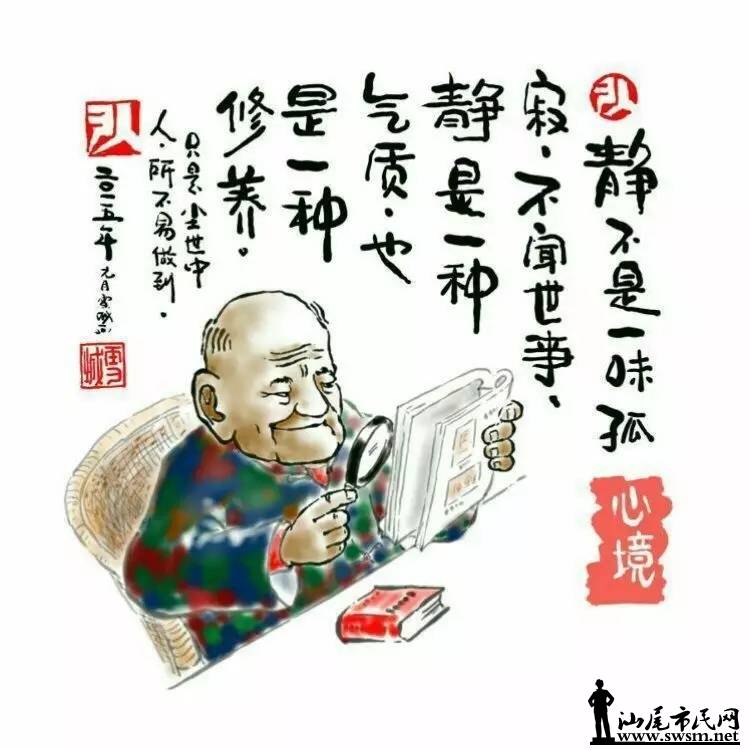 静不是一味孤
寂、不闻世事、
静是一种
气质、也
是一种
修养。
只是尘世中
人、所不易做到。
二〇一五年
元月雪城
雪城
心境
汕尾市民网
www.swsm.net